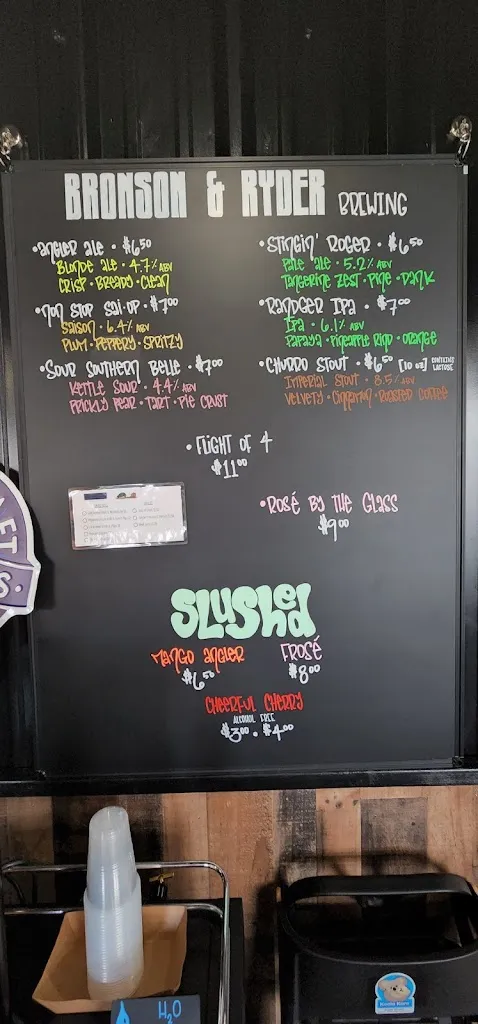 BRONSON & RYDER BREWING
• ANGLER ALE • $6.50
BLONDE ALE • 4.7% ABV
CRISP • BREADY • CLEAN
• NON STOP SAI-OP • $7.00
SAISON • 6.4% ABV
PLUM • PEPPERY • SPRITZY
• SOUR SOUTHERN BELLE • $7.00
KETTLE SOUR • 4.4% ABV
PRICKLY PEAR • TART • PIE CRUST
• STINGIN' ROGER • $6.50
PALE ALE • 5.2% ABV
TANGERINE ZEST • PINE • DANK
• RANDGER IPA • $7.00
IPA • 6.1% ABV
PAPAYA • PINEAPPLE RIND • ORANGE
• CHURRO STOUT • $6.50 [10 oz] CONTAINS LACTOSE
IMPERIAL STOUT • 8.5% ABV
VELVETY • CINNAMON • ROASTED COFFEE
• FLIGHT OF 4
$11.00
• ROSÉ BY THE GLASS
$9.00
SLUSHED
MANGO ANGLER
$6.50
FROSÉ
$8.00
CHEERFUL CHERRY
ALCOHOL FREE
$3.00 • $4.00
H2O
Koala Kare